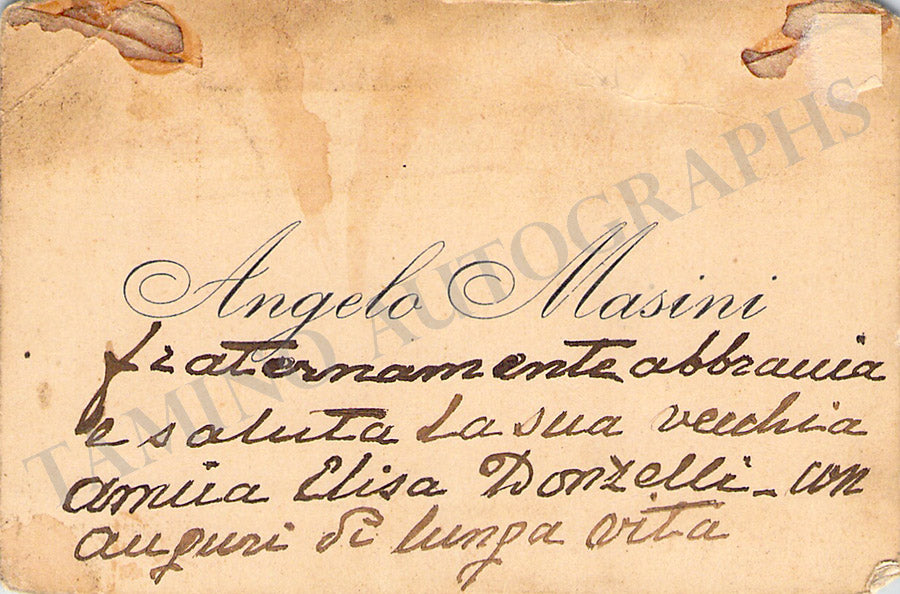 Angelo Masini
fraternamente abbraccia
e saluta la sua vecchia
amica Elisa Donzelli - con
auguri di lunga vita
TAMINO AUTOGRAPHS